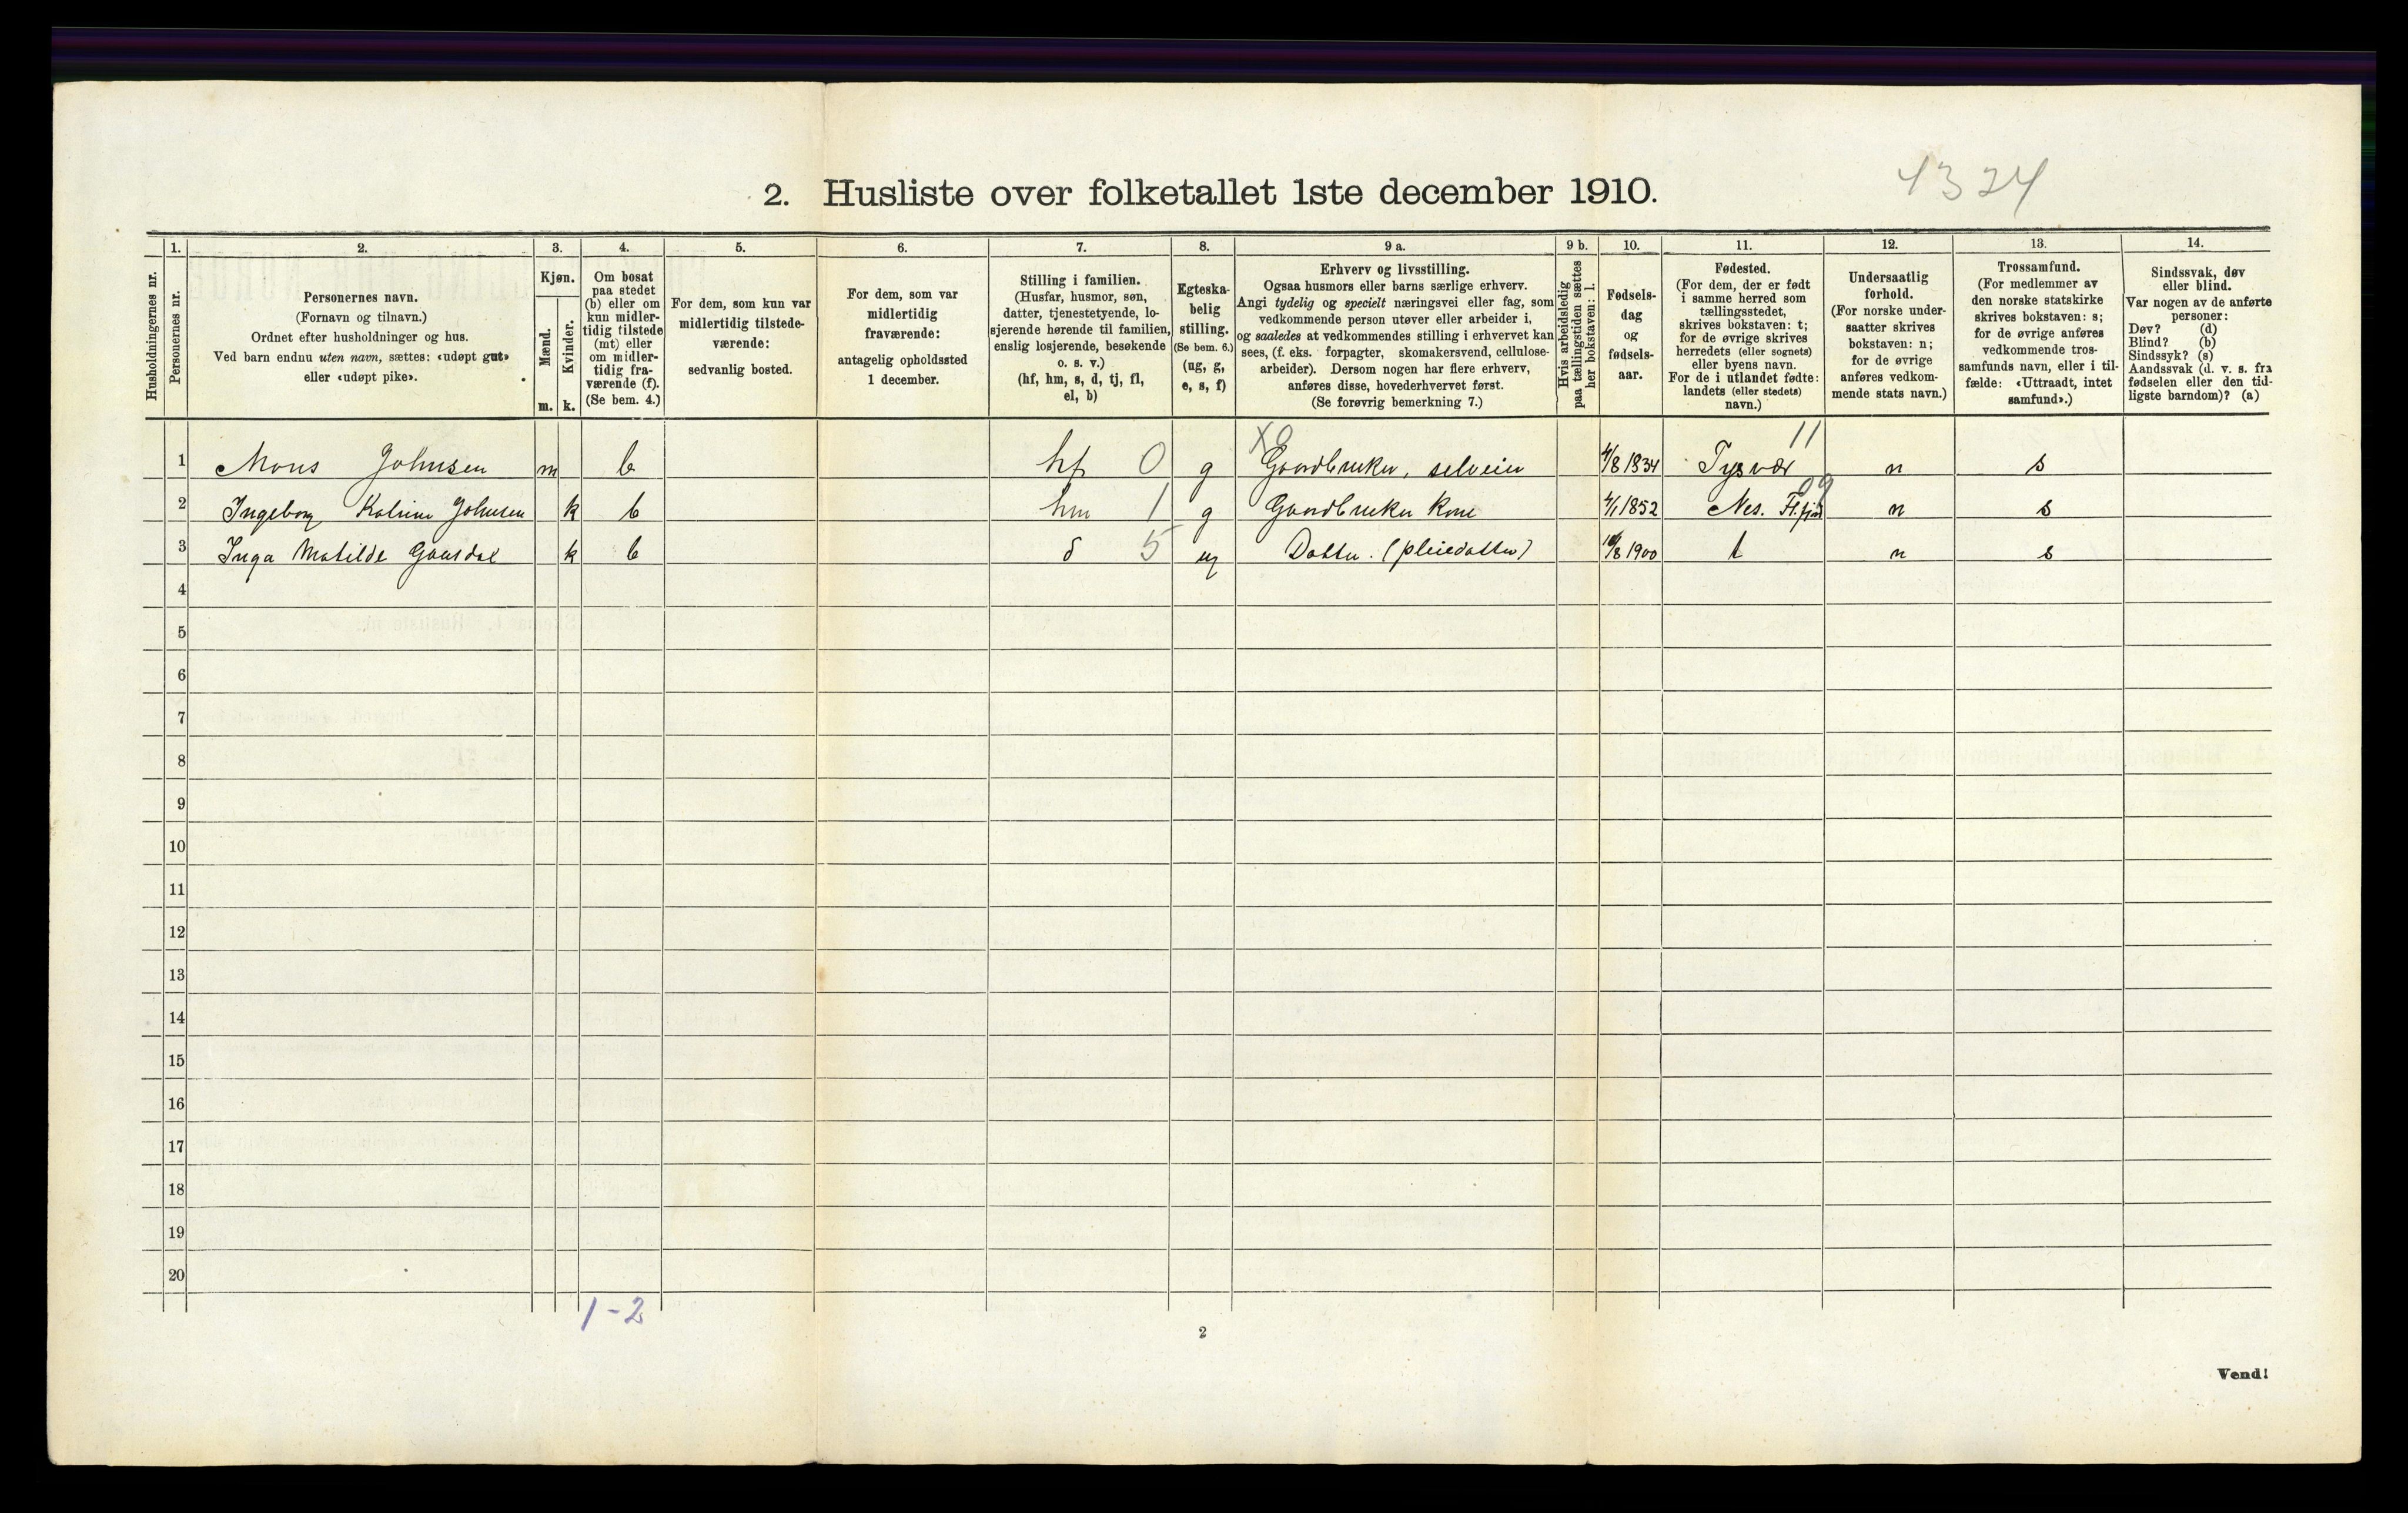 4324
2. Husliste over folketallet 1ste december 1910.
Husholdningernes nr.
1.
Personernes nr.
2.
Personernes navn.
(Fornavn og tilnavn.)
Ordnet efter husholdninger og hus.
Ved barn endnu uten navn, sættes: «udøpt gut»
eller «udøpt pike».
3.
Kjøn.
Mænd.
Kvinder.
m. k.
4.
Om bosat
paa stedet
(b) eller om
kun midler-
tidig tilstede
(mt) eller
om midler-
tidig fra-
værende (f).
(Se bem. 4.)
5.
For dem, som kun var
midlertidig tilstede-
værende:
sedvanlig bosted.
6.
For dem, som var
midlertidig
fraværende:
antagelig opholdssted
1 december.
7.
Stilling i familien.
(Husfar, husmor, søn,
datter, tjenestetyende, lo-
sjerende hørende til familien,
enslig losjerende, besøkende
o. s. v.)
(hf, hm, s, d, tj, fl,
el, b)
8.
Egteska-
belig
stilling.
(Se bem. 6.)
(ug, g,
e, s, f)
9 a.
Erhverv og livsstilling.
Ogsaa husmors eller barns særlige erhverv.
Angi tydelig og specielt næringsvei eller fag, som
vedkommende person utøver eller arbeider i,
og saaledes at vedkommendes stilling i erhvervet kan
sees, (f. eks. forpagter, skomakersvend, cellulose-
arbeider). Dersom nogen har flere erhverv,
anføres disse, hovederhvervet først.
(Se forøvrig bemerkning 7.)
9 b.
Hvis arbeidsledig
paa tællingstiden sættes
her bokstaven: l.
10.
Fødsels-
dag
og
fødsels-
aar.
11.
Fødested.
(For dem, der er født
i samme herred som
tællingsstedet,
skrives bokstaven: t;
for de øvrige skrives
herredets (eller sognets)
eller byens navn.
For de i utlandet fødte:
landets (eller stedets)
navn.)
12.
Undersaatlig
forhold.
(For norske under-
saatter skrives
bokstaven: n;
for de øvrige
anføres vedkom-
mende stats navn.)
13.
Trossamfund.
(For medlemmer av
den norske statskirke
skrives bokstaven: s;
for de øvrige anføres
vedkommende tros-
samfunds navn, eller i til-
fælde: «Uttraadt, intet
samfund».)
14.
Sindssvak, døv
eller blind.
Var nogen av de anførte
personer:
Døv? (d)
Blind? (b)
Sindssyk? (s)
Aandssvak (d. v. s. fra
fødselen eller den tid-
ligste barndom)? (a)
X0 11
1 Mons Johnsen m b hf 0 g Gaardbruker, selveier 4/8 1834 Tysvær n s
09
2 Ingeborg Katrine Johnsen k b hm 1 g Gaardbruker Kone 4/1 1852 Nes. n s
3 Inga Matilde Gausdal k b d 5 ug Datter. (pleiedatter) 1900 t n s
4
5
6
7
8
9
10
11
12
13
14
15
16
17
18
19
20
1-2
2
Vend!